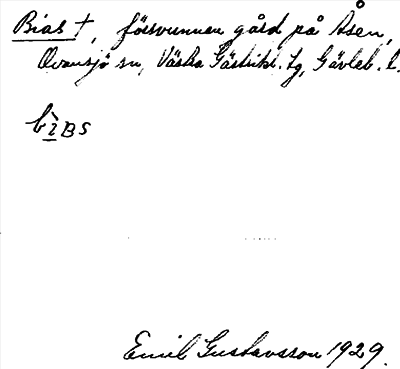 Bias †, försvunnen gård på Åsen,
Ovansjö sn, Västra Gästrikl. tg, Gävleb. l.
bìʙs
Emil Gustavsson 1929.